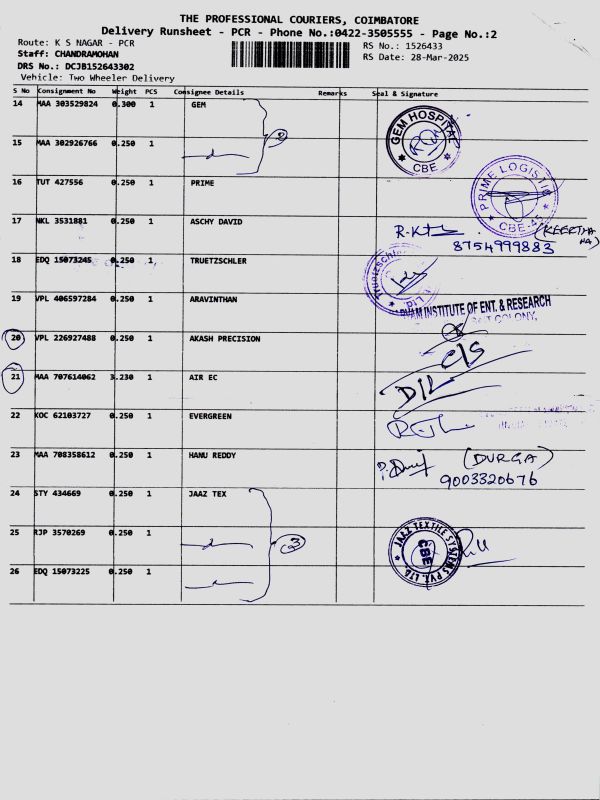 THE PROFESSIONAL COURIERS, COIMBATORE
Delivery Runsheet - PCR - Phone No.:0422-3505555 - Page No.:2
Route: K S NAGAR - PCR
RS No.: 1526433
Staff: CHANDRAMOHAN
RS Date: 28-Mar-2025
DRS No.: DCJB152643302
Vehicle: Two Wheeler Delivery
S No Consignment No Weight PCS Consignee Details Remarks Seal & Signature
14 MAA 303529824 0.300 1 GEM
GEM HOSPITAL CBE
15 MAA 302926766 0.250 1
2
16 TUT 427556 0.250 1 PRIME
PRIME LOGISTIC CBE-45
17 NKL 3531881 0.250 1 ASCHY DAVID
(KEERTHANA)
8754999883
18 EDQ 15073245 0.250 1 TRUETZSCHLER
Truetzschler Ltd.
19 VPL 406597284 0.250 1 ARAVINTHAN
INSTITUTE OF ENT. & RESEARCH
COLONY,
20 VPL 226927488 0.250 1 AKASH PRECISION
C/S
21 MAA 707614062 3.230 1 AIR EC
D/L
22 KOC 62103727 0.250 1 EVERGREEN
23 MAA 708358612 0.250 1 HANU REDDY
(DURGA)
9003320676
24 STY 434669 0.250 1 JAAZ TEX
25 RJP 3570269 0.250 1
3
JAAZ TEXTILE SYSTEMS PVT. LTD. CBE
26 EDQ 15073225 0.250 1